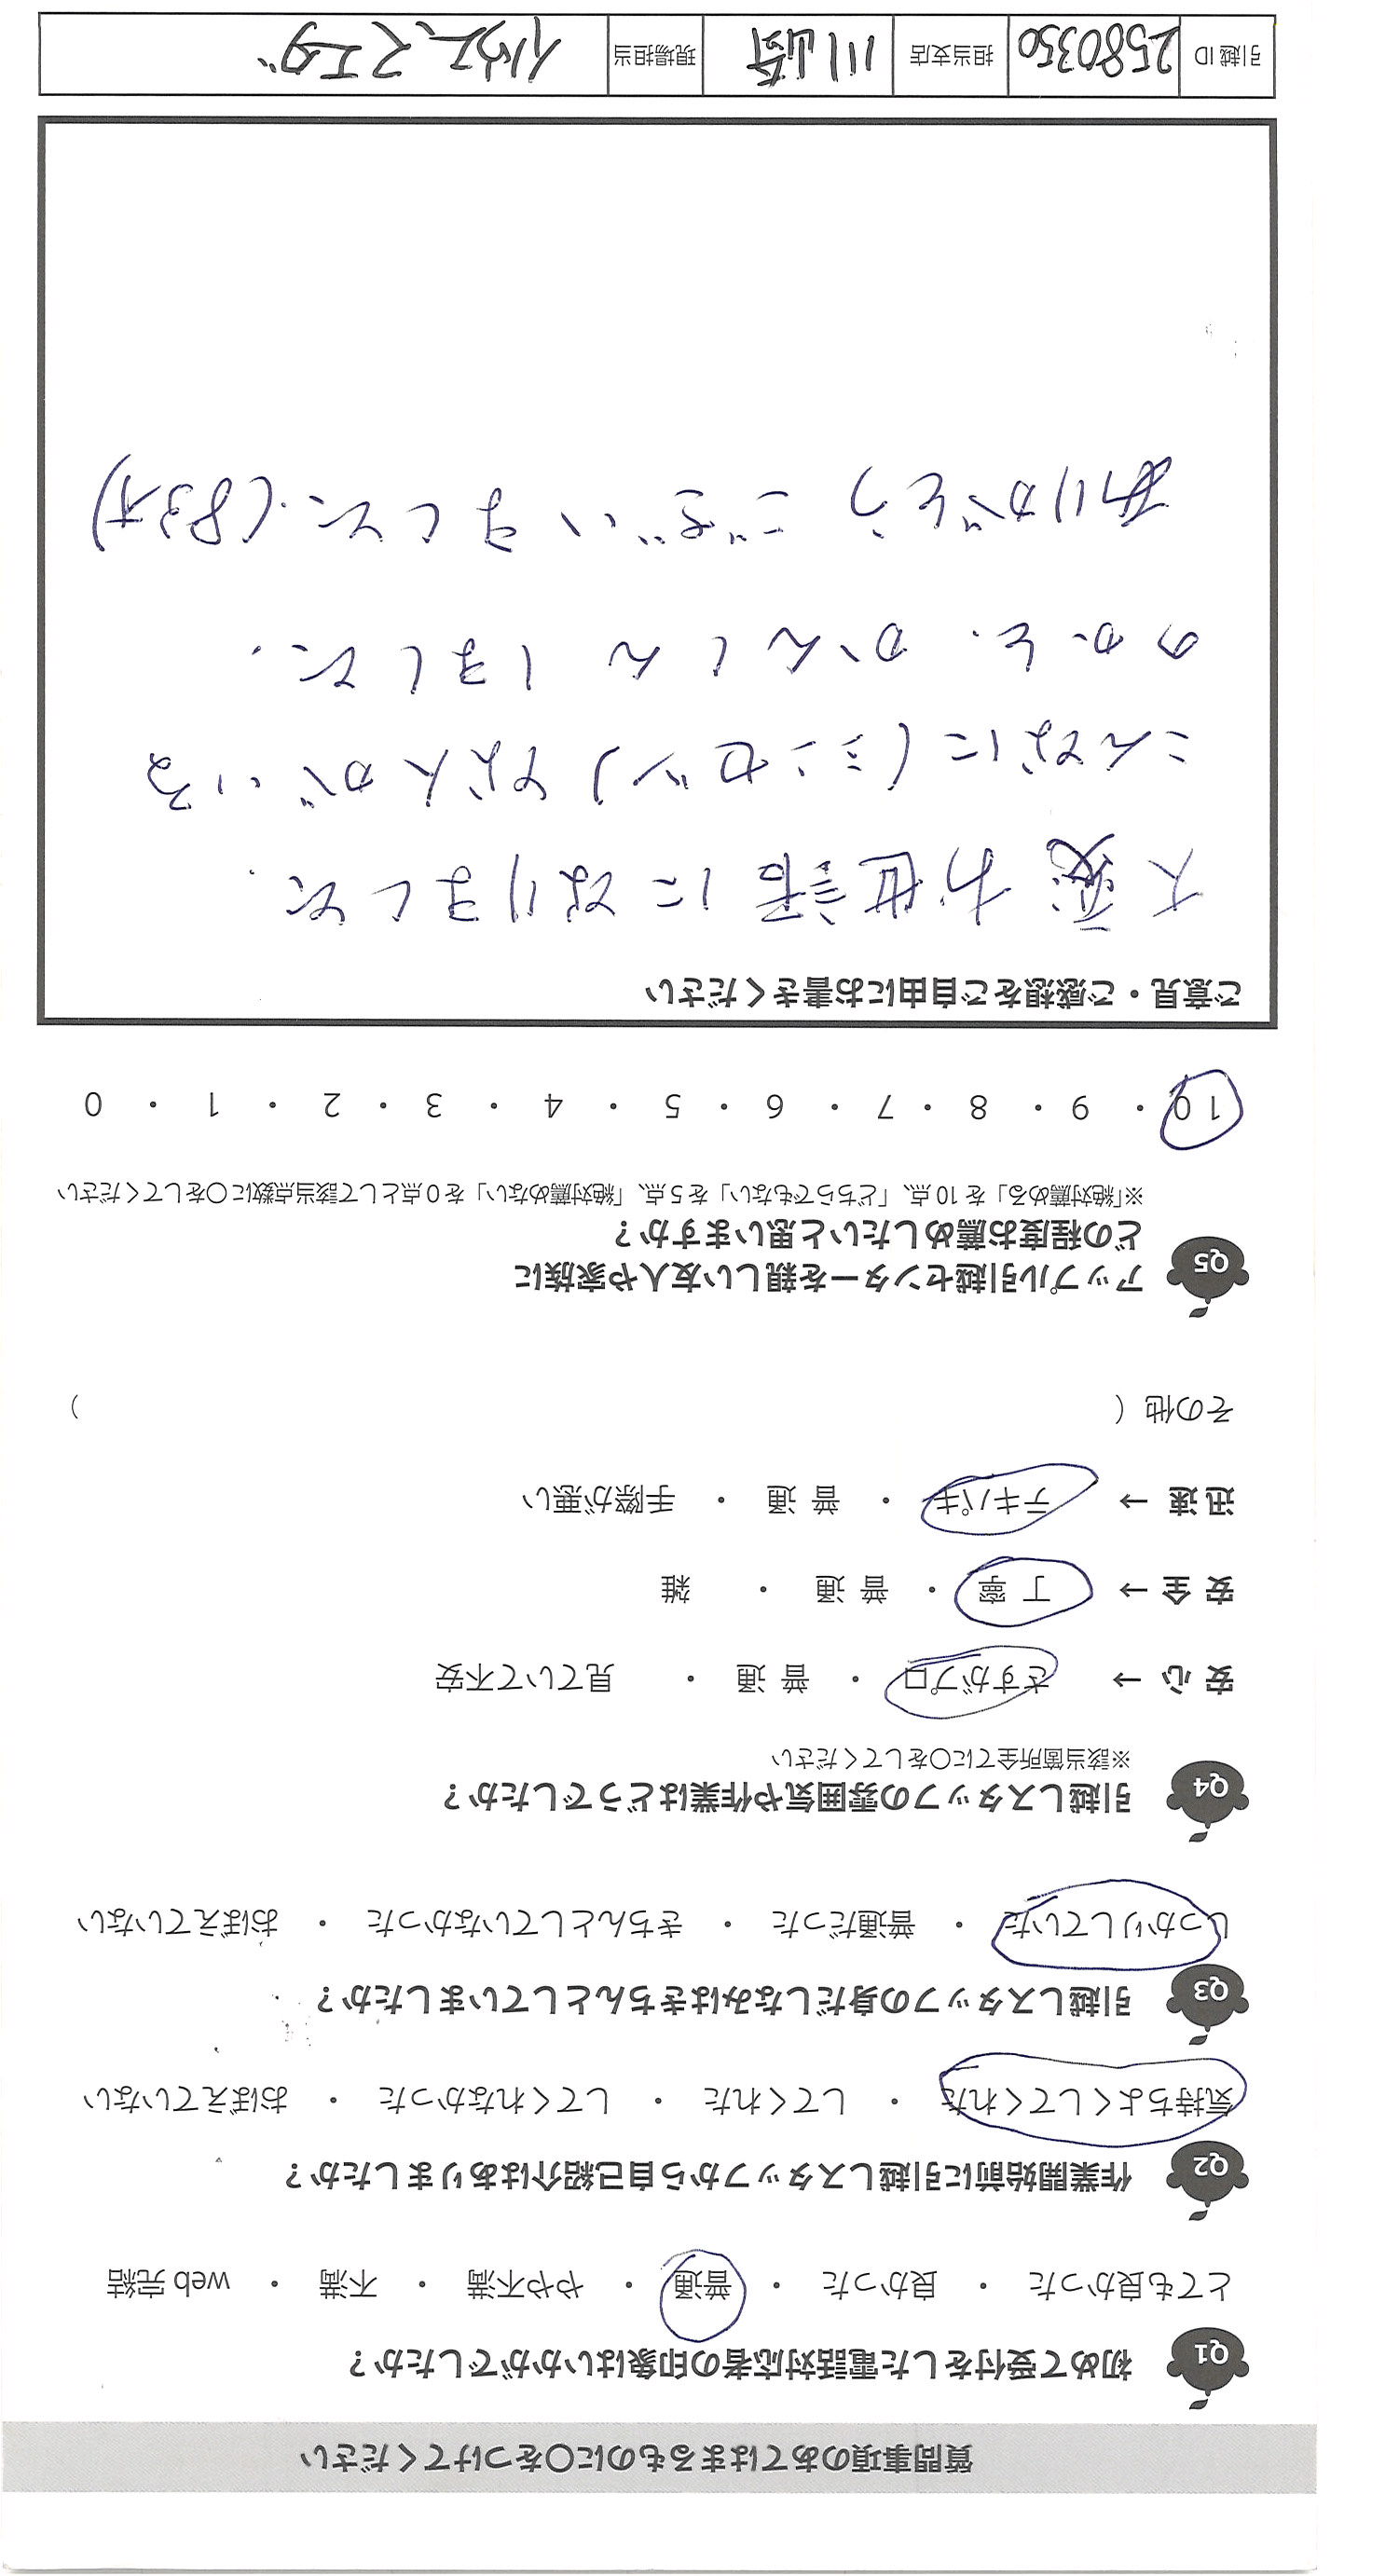 質問事項のあてはまるものに〇をつけてください
Q1 初めて受付をした電話対応者の印象はいかがでしたか？
とても良かった ・ 良かった ・ 普通 ・ やや不満 ・ 不満 ・ web 完結
Q2 作業開始前に引越しスタッフから自己紹介はありましたか？
気持ちよくしてくれた ・ してくれた ・ してくれなかった ・ おぼえていない
Q3 引越しスタッフの身だしなみはきちんとしていましたか？
しっかりしていた ・ 普通だった ・ きちんとしていなかった ・ おぼえていない
Q4 引越しスタッフの雰囲気や作業はどうでしたか？
※該当箇所全てに〇をしてください
安 心 → さすがプロ ・ 普 通 ・ 見ていて不安
安 全 → 丁 寧 ・ 普 通 ・ 雑
迅 速 → テキパキ ・ 普 通 ・ 手際が悪い
その他（ ）
Q5 アップル引越センターを親しい友人や家族に
どの程度お薦めしたいと思いますか？
※「絶対薦める」を 10 点、「どちらでもない」を 5 点、「絶対薦めない」を 0 点として該当点数に〇をしてください
10 ・ 9 ・ 8 ・ 7 ・ 6 ・ 5 ・ 4 ・ 3 ・ 2 ・ 1 ・ 0
ご意見・ご感想をご自由にお書きください
大変お世話になりました.
こんなに(シンセツ)な人がいる
のかと. かんしんしました.
ありがとうございました.(83才)
引越 ID 2580350 担当支店 川崎 現場担当 イノウエ、スエダ